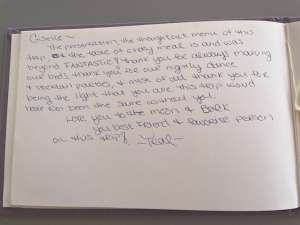 Giselle ~
The presentation, the thoughtout menu of this
trip & the taste of every meal is and was
beyond FANTASTIC! Thank you for always making
our beds, thank you for our nightly dance
parties, & most of all thank you for
being the light that you are, this trip would
have not been the same without you.
Love you to the moon & Back
your best Friend & favorite person
on this trip!